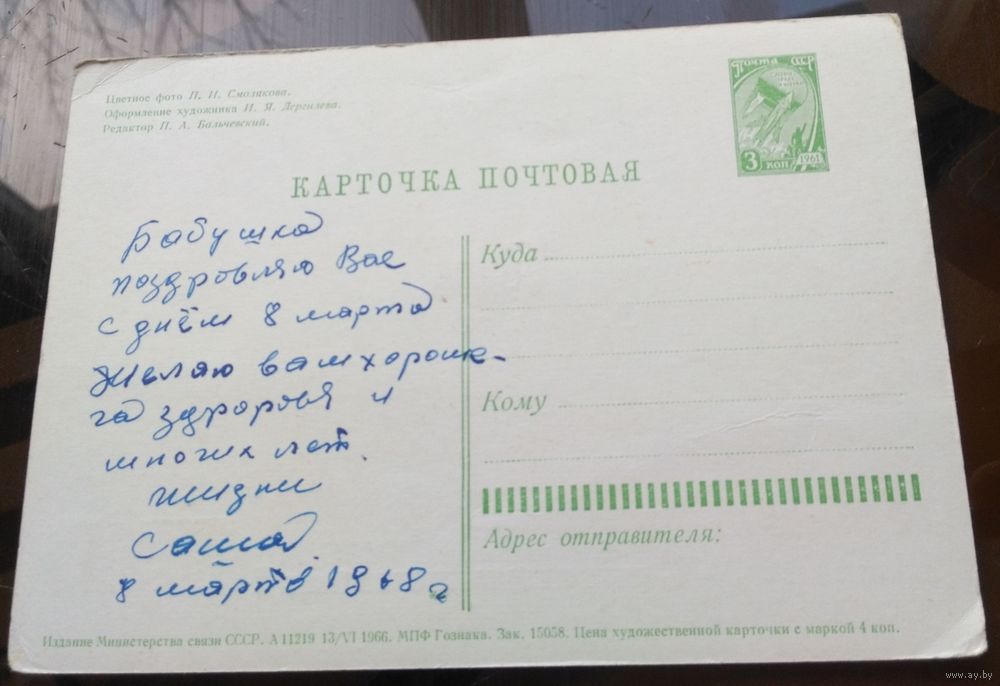 Цветное фото П. И. Смолякова.
Оформление художника И. Я. Дергилева.
Редактор П. А. Бальчевский.
ПОЧТА СССР
3 КОП 1961
КАРТОЧКА ПОЧТОВАЯ
Бабушка
поздровляю Вас
с днём 8 марта
Желаю вам хороше-
га здоровья и
многих лет.
жизни
Саша.
8 марта 1968 г
Куда
Кому
Адрес отправителя:
Издание Министерства связи СССР. А 11219 13/VI 1966. МПФ Гознака. Зак. 15058. Цена художественной карточки с маркой 4 коп.
www.ay.by